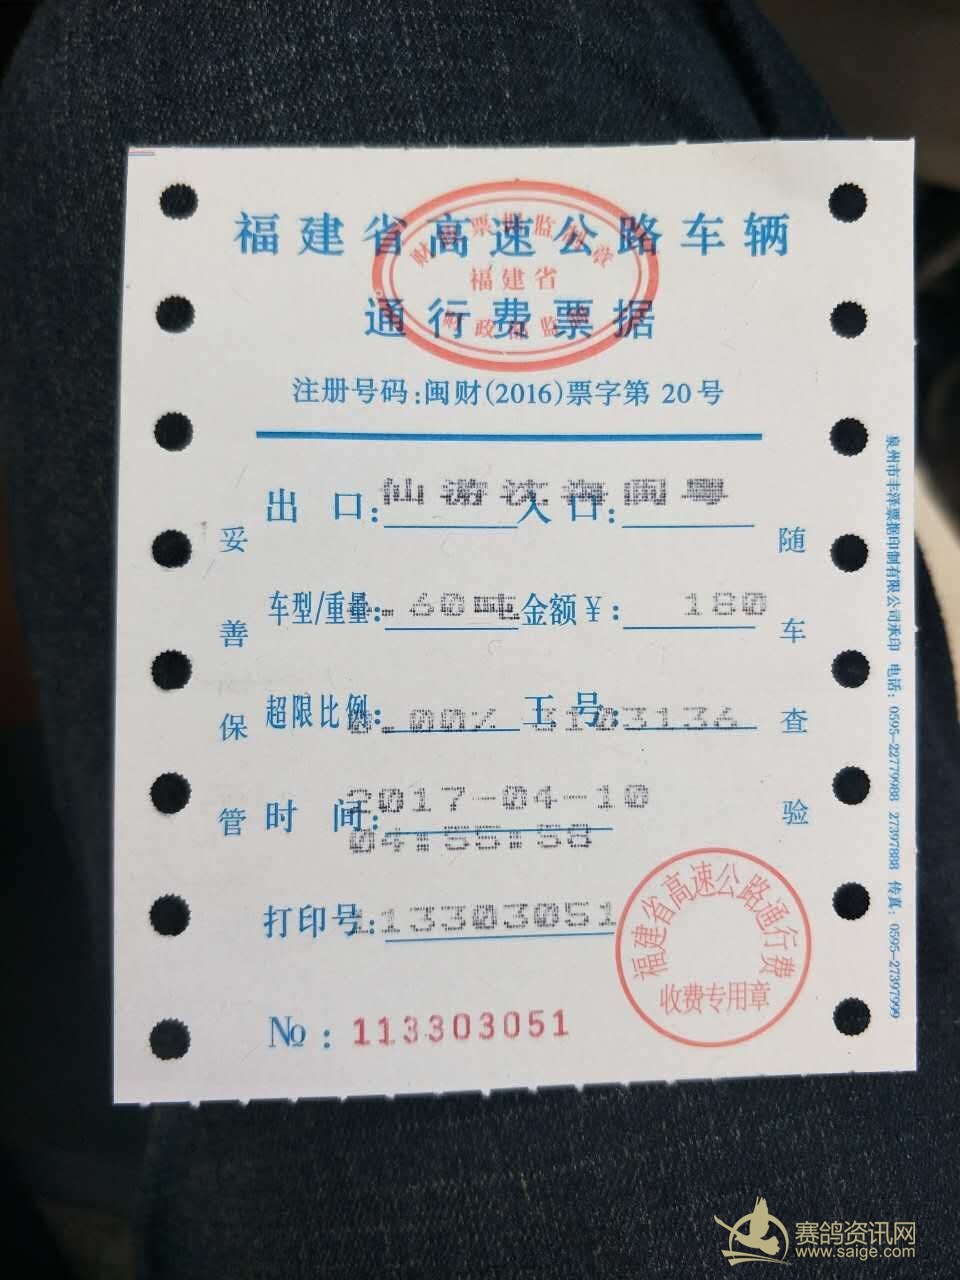 福建省高速公路车辆
通行费票据
财政票据监制章
福建省
财政部监制
注册号码:闽财(2016)票字第 20号
出 口: 仙游沈海 入 口: 闽粤
车型/重量: .60吨 金额￥: 180
超限比例: 0.00% 工 号: 3103136
时 间: 2017-04-10
04:55:58
打印号: 113303051
No : 113303051
妥善保管
随车查验
福建省高速公路通行费
收费专用章
泉州市丰泽票据印制有限公司承印 电话: 0595-22779988 27397888 传真: 0595-27397999
赛鸽资讯网
www.saige.com